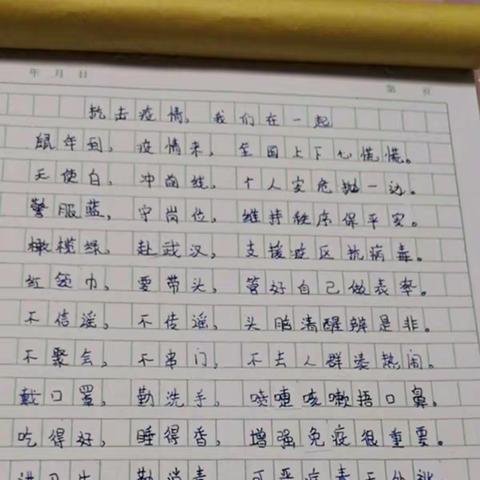 年 月 日 第 页
抗击疫情，我们在一起
鼠年到，疫情来，全国上下心慌慌。
天使白，冲前线，个人安危抛一边。
警服蓝，守岗位，维持秩序保平安。
橄榄绿，赴武汉，支援疫区抗病毒。
红领巾，要带头，管好自己做表率。
不信谣，不传谣，头脑清醒辨是非。
不聚会，不串门，不去人群凑热闹。
戴口罩，勤洗手，喷嚏咳嗽捂口鼻。
吃得好，睡得香，增强免疫很重要。
讲卫生，勤消毒，可恶病毒无处逃